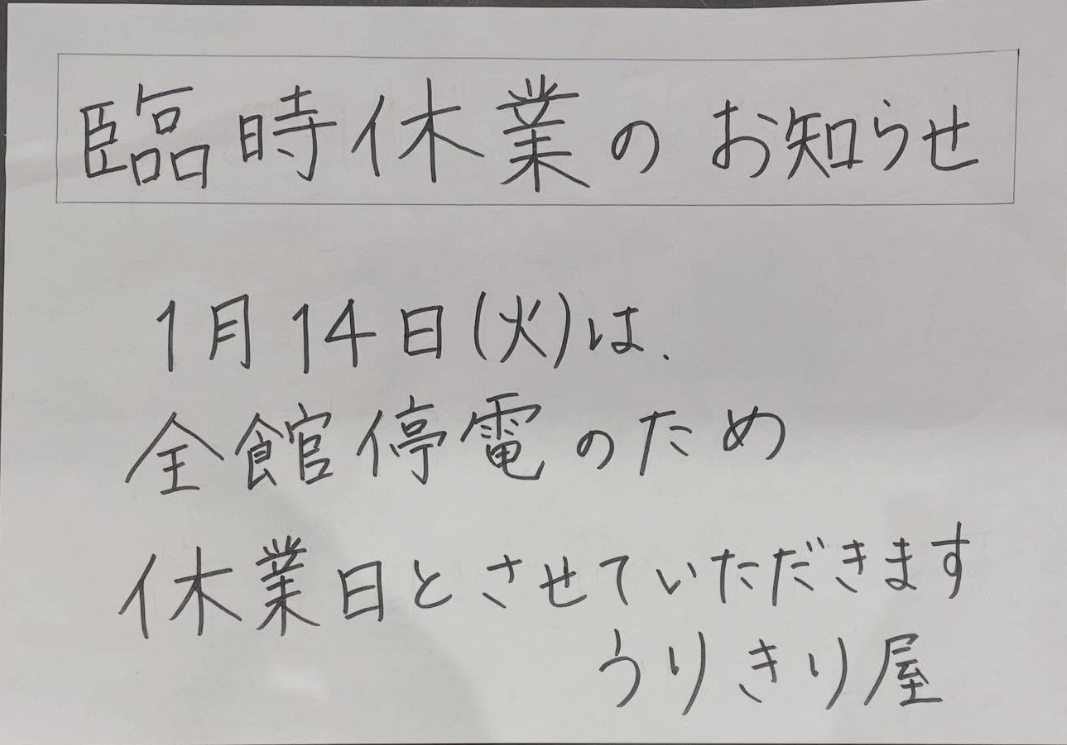 臨時休業のお知らせ
1月14日(火)は、
全館停電のため
休業日とさせていただきます
うりきり屋